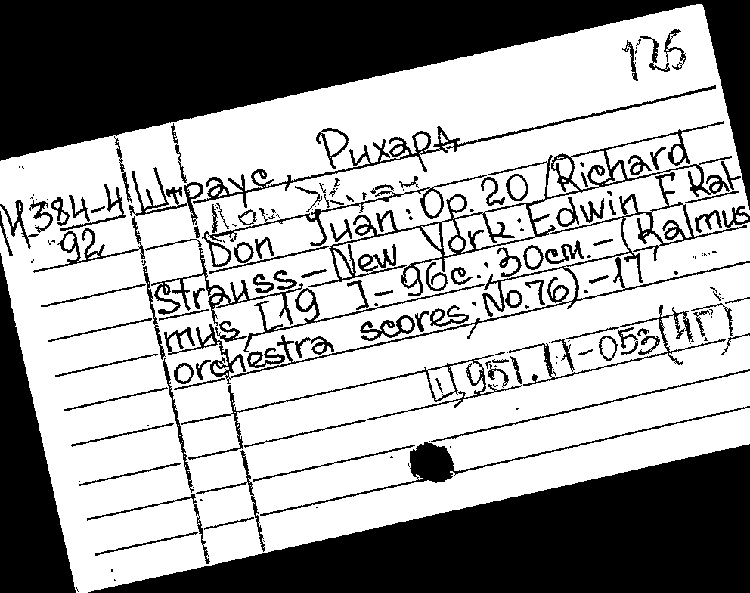 126
Штраус, Рихард
И384-4
92
Дон Жуан
Don Juan: Op. 20 / Richard
Strauss. - New York: Edwin F. Kal-
mus, [19 ]. - 96c.; 30см. - (Kalmus
orchestra scores; No. 76). - 17
Ц951.11-053(4Г)